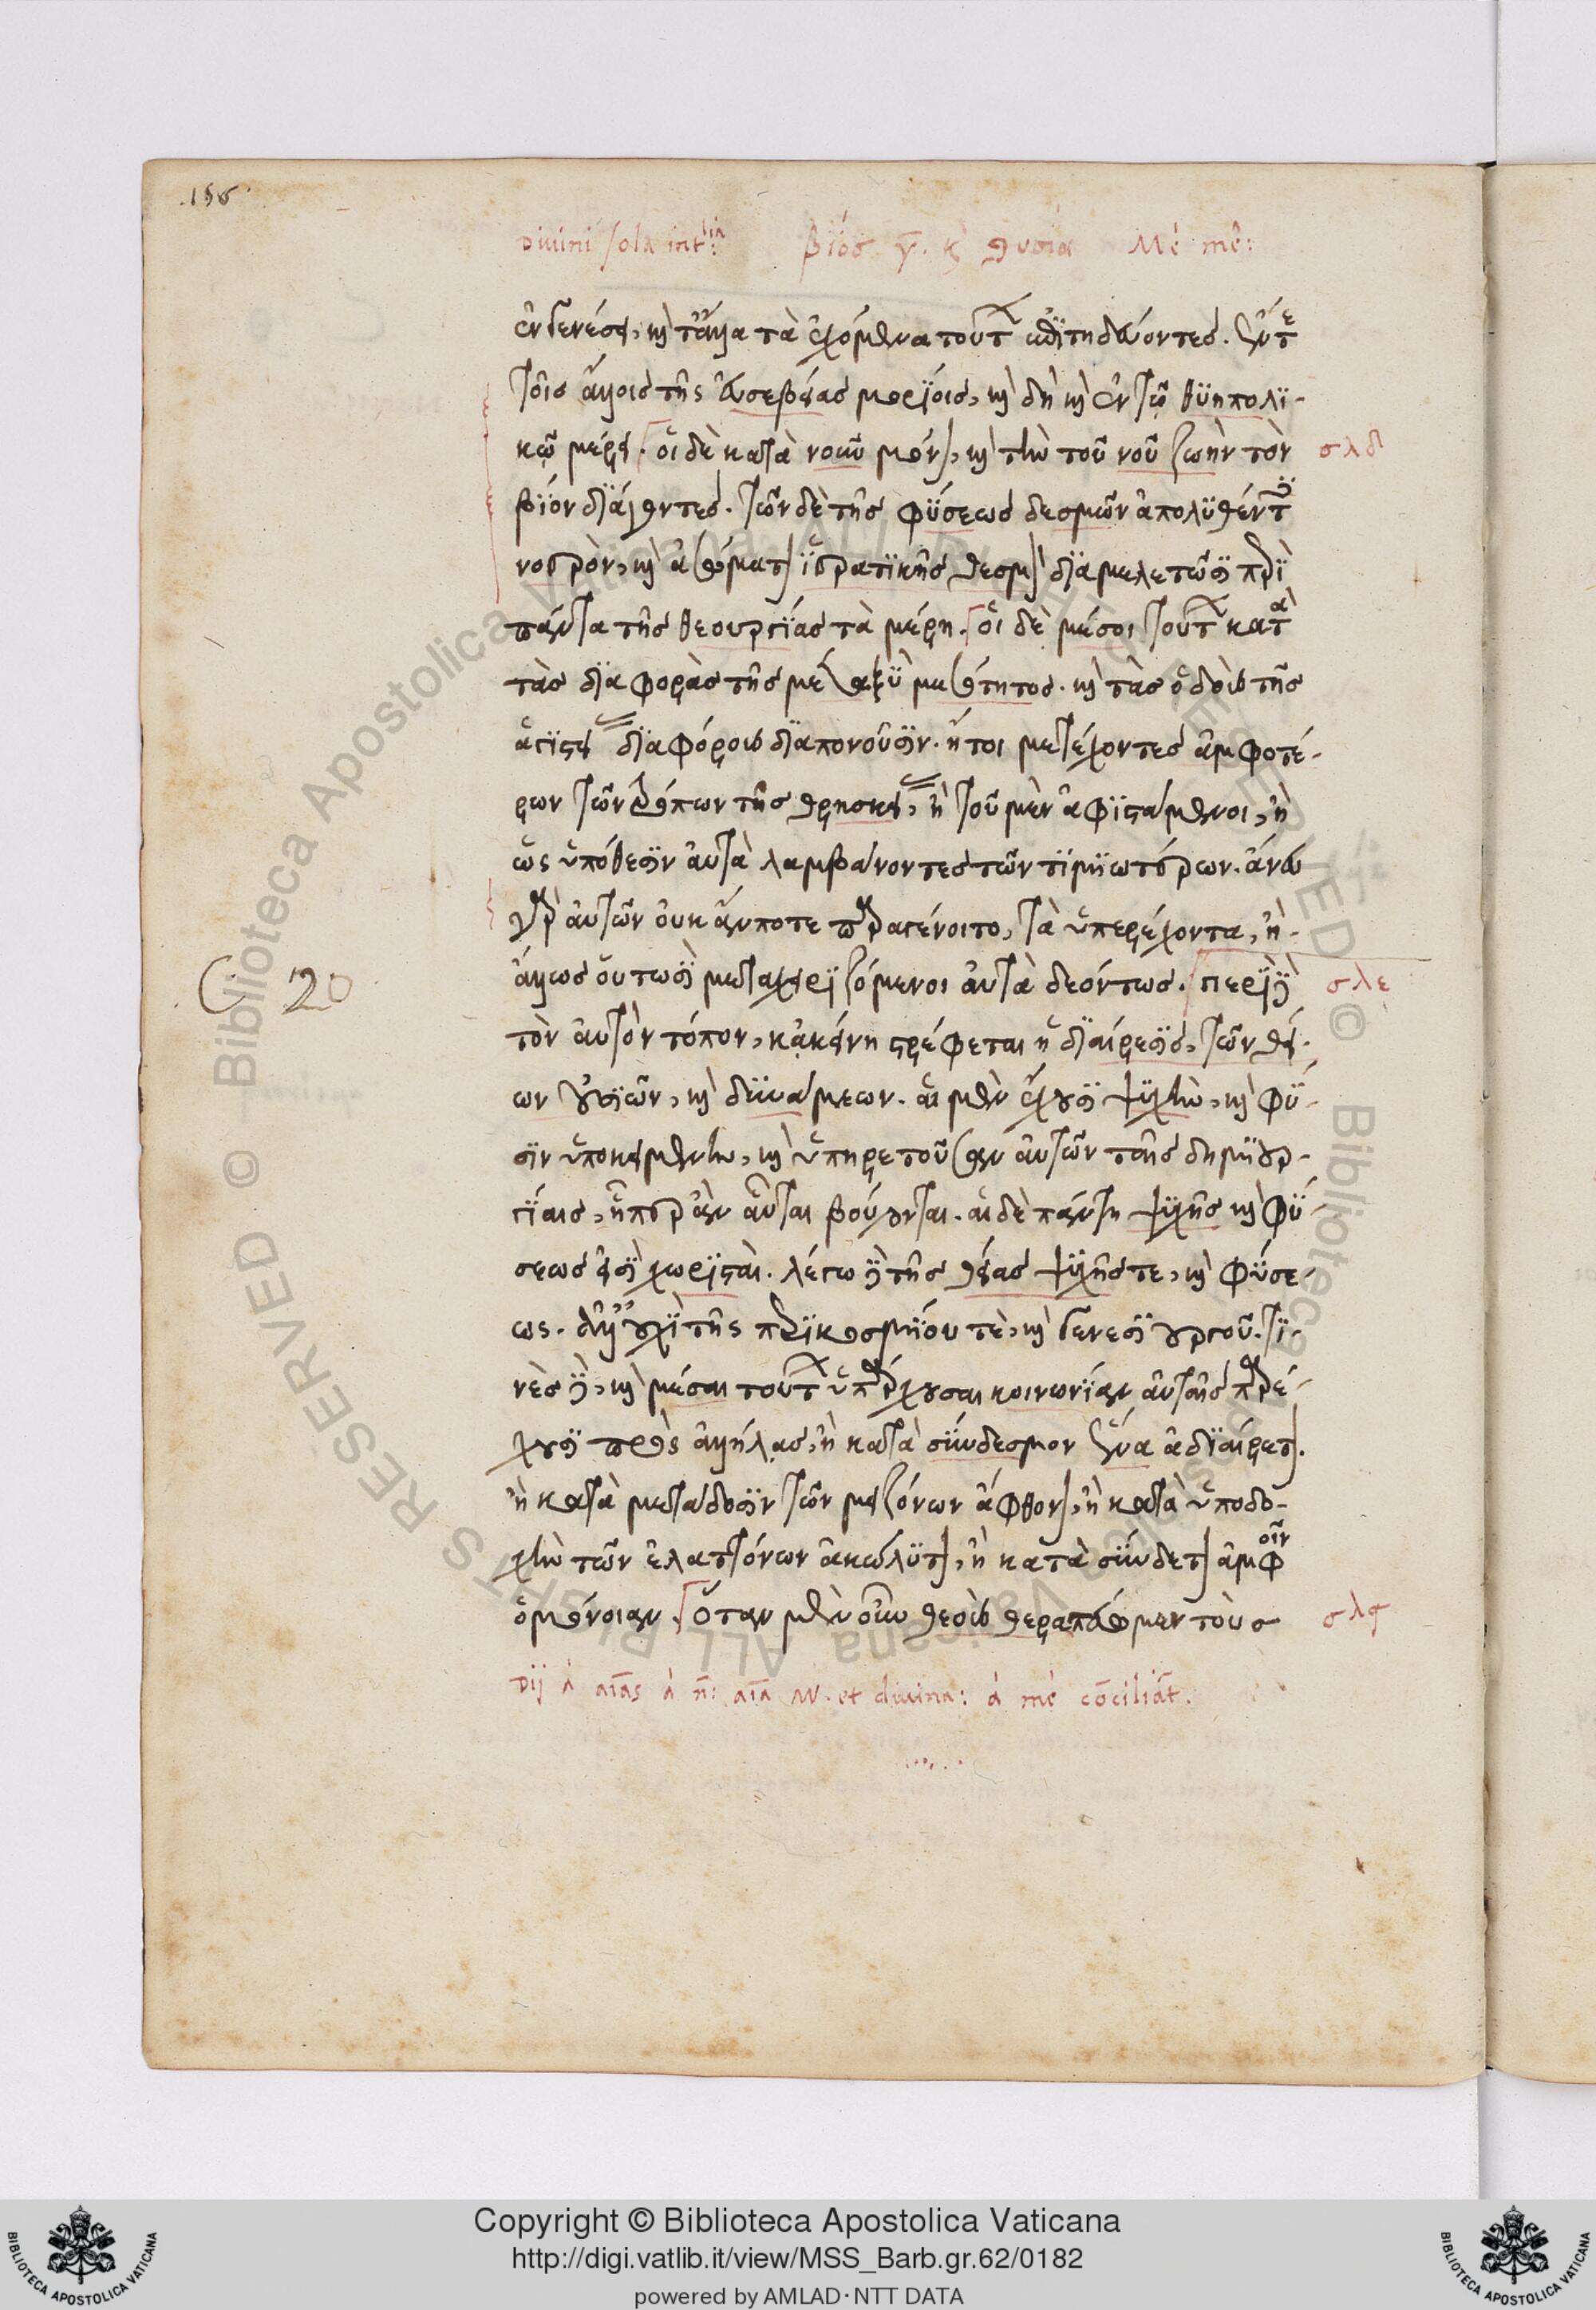 .156.
βίος γ. κ θυσία
ἐν γενέσει, καὶ τἄλλα τὰ ἐχόμενα τούτων ἐπιτηδεύοντες. ἔν τε
τοῖς ἄλλοις τῆς εὐσεβείας μορίοις, καὶ δὴ καὶ ἐν τῷ θυηπολι-
κῷ μέρει. οἱ δὲ κατὰ νοῦν μόνον, καὶ τὴν τοῦ νοῦ ζωὴν τὸν
σλδ
βίον διάγοντες. τῶν δὲ τῆς φύσεως δεσμῶν ἀπολυθέντες
νοερὸν, καὶ ἀσώματον ἱερατικῆς θεσμὸν διαμελετῶσι περὶ
πάντα τῆς θεουργίας τὰ μέρη. οἱ δὲ μέσοι τούτων κατὰ
τὰς διαφορὰς τῆς μεταξὺ μεσότητος. καὶ τὰς ὁδοὺς τῆς
ἁγιστείας διαφόρους διαπονοῦσιν. ἤτοι μετέχοντες ἀμφοτέ-
ρων τῶν τρόπων τῆς θρησκείας, ἢ τοῦ μὲν ἀφιστάμενοι, ἢ
ὡς ὑπόθεσιν αὐτὰ λαμβάνοντες τῶν τιμιωτέρων. ἄνευ
γὰρ αὐτῶν οὐκ ἄν ποτε παραγένοιτο, τὰ ὑπερέχοντα, ἢ
ἄλλως οὑτωσὶ μεταχειριζόμενοι αὐτὰ δεόντως. περὶ δὲ
σλε
C 20
τὸν αὐτὸν τόπον, κἀκείνη στρέφεται ἡ διαίρεσις, τῶν θεί-
ων οὐσιῶν, καὶ δυνάμεων. αἱ μὲν ἔχουσι ψυχὴν, καὶ φύ-
σιν ὑποκειμένην, καὶ ὑπηρετοῦσαν αὐτῶν ταῖς δημιουρ-
γίαις, ᾗπερ ἂν αὗται βούλονται. αἱ δὲ πάντη ψυχῆς καὶ φύ-
σεως εἰσὶ χωρισταὶ. λέγω δὲ τῆς θείας ψυχῆς τε, καὶ φύσε-
ως. ἀλλ' οὐχὶ τῆς περικοσμίου τὲ, καὶ γενεσιουργοῦ. τι-
νὲς δὲ, καὶ μέσαι τούτων ὑπάρχουσαι κοινωνίαν αὐταῖς παρέ-
χουσι πρὸς ἀλλήλας, ἢ κατὰ σύνδεσμον ἕνα ἀδιαίρετον.
ἢ κατὰ μετάδοσιν τῶν μειζόνων ἄφθονον, ἢ κατὰ ὑποδο-
χὴν τῶν ἐλαττόνων ἀκώλυτον, ἢ κατὰ σύνδετον ἀμφοῖν
ὁμόνοιαν. Ὅταν μὲν οὖν θεοὺς θεραπεύωμεν τοὺς
σλϛ
Copyright © Biblioteca Apostolica Vaticana
http://digi.vatlib.it/view/MSS_Barb.gr.62/0182
powered by AMLAD·NTT DATA